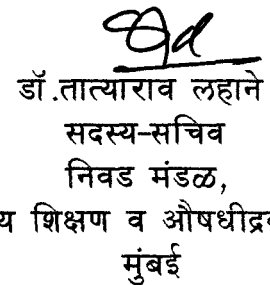 डॉ.तात्याराव लहाने
सदस्य-सचिव
निवड मंडळ,
शिक्षण व
मुंबई